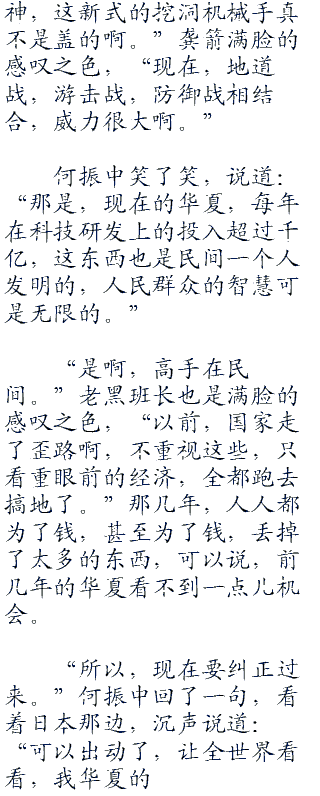 神，这新式的挖洞机械手真
不是盖的啊。”龚箭满脸的
感叹之色，“现在，地道
战，游击战，防御战相结
合，威力很大啊。”
何振中笑了笑，说道：
“那是，现在的华夏，每年
在科技研发上的投入超过千
亿，这东西也是民间一个人
发明的，人民群众的智慧可
是无限的。”
“是啊，高手在民
间。”老黑班长也是满脸的
感叹之色，“以前，国家走
了歪路啊，不重视这些，只
看重眼前的经济，全都跑去
搞地了。”那几年，人人都
为了钱，甚至为了钱，丢掉
了太多的东西，可以说，前
几年的华夏看不到一点儿机
会。
“所以，现在要纠正过
来。”何振中回了一句，看
着日本那边，沉声说道：
“可以出动了，让全世界看
看，我华夏的